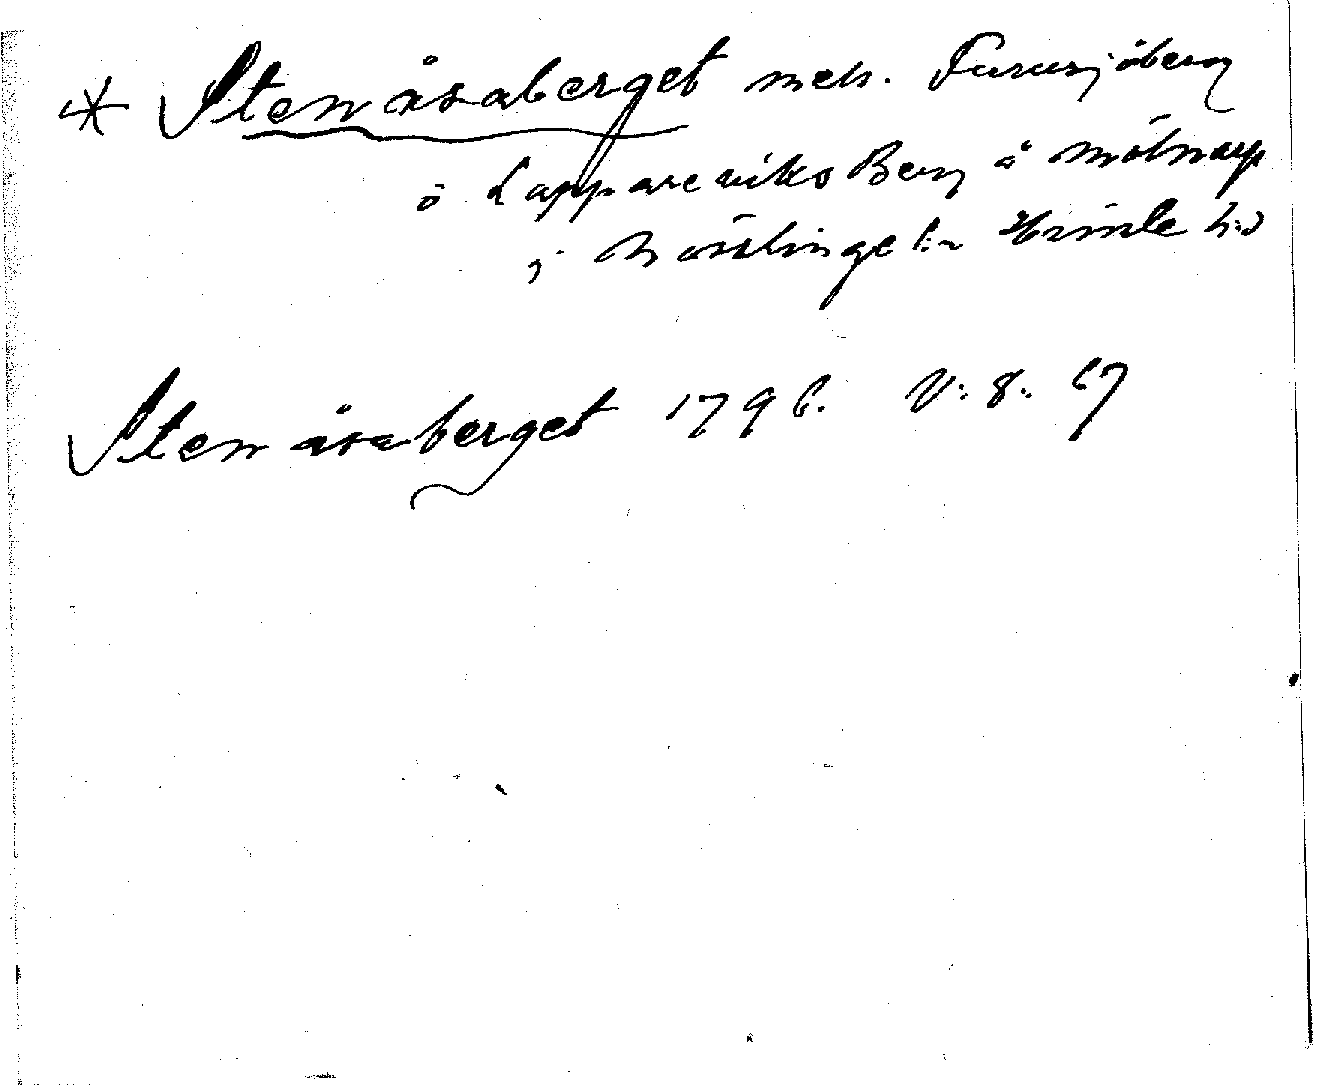 * Stenåsaberget mell. Furusjöberg
o Lappareviks Berg å Mölnarp
i Nösslinge sn Himle hd
Stenåsaberget 1796. V: 8: 67